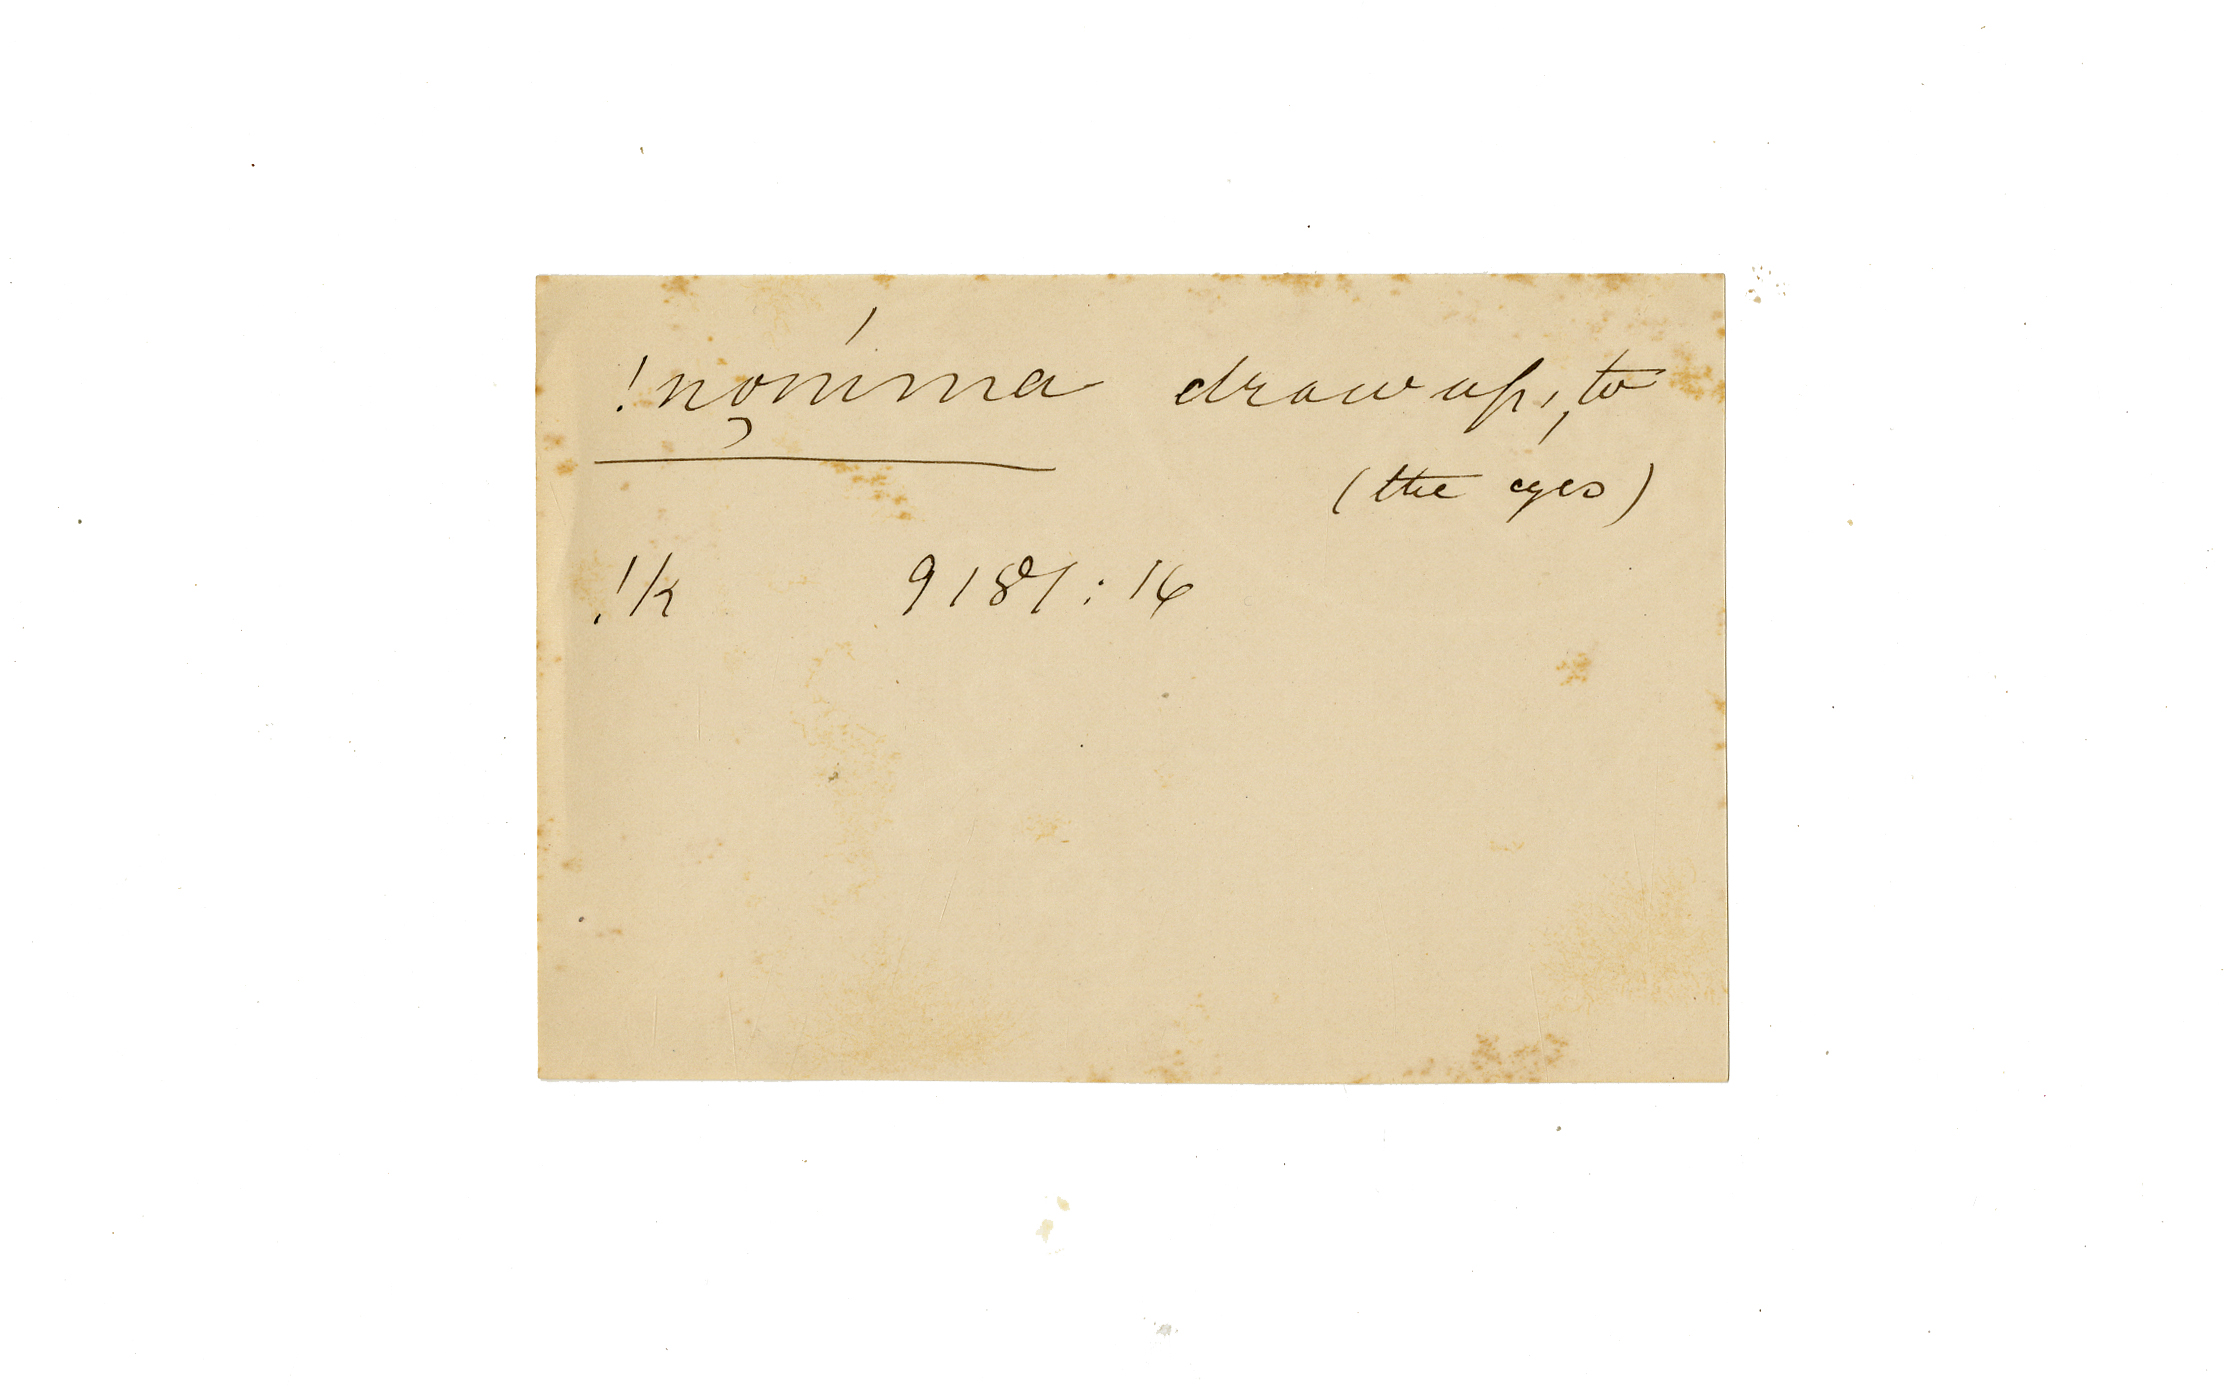 !nǫḿma draw up, to
(the eyes)
!k 9181:16